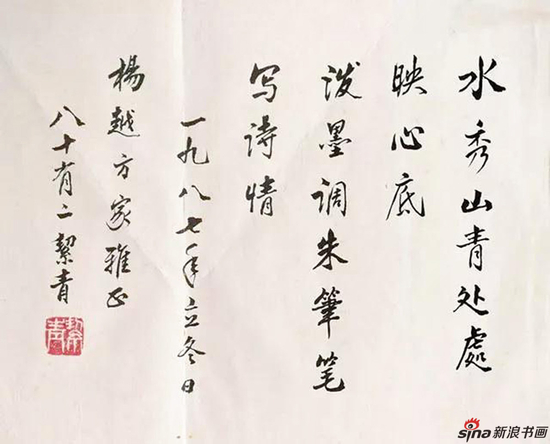 水秀山青处處
映心底
泼墨调朱筆笔
写诗情
一九八七年立冬日
楊越方家雅正
八十有二絜青
絜青
sina新浪书画